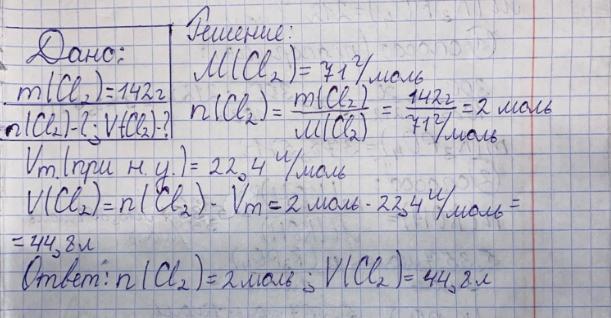 Дано:
m(Cl₂)=142г
n(Cl₂)-?; V(Cl₂)-?
Решение:
M(Cl₂)=71 г/моль
n(Cl₂)= m(Cl₂)/M(Cl₂) = 142г/71 г/моль = 2 моль
Vm.(при н.у.)=22,4 л/моль
V(Cl₂)=n(Cl₂)·Vm=2 моль·22,4 л/моль=
=44,8л
Ответ: n(Cl₂)=2моль; V(Cl₂)=44,8л